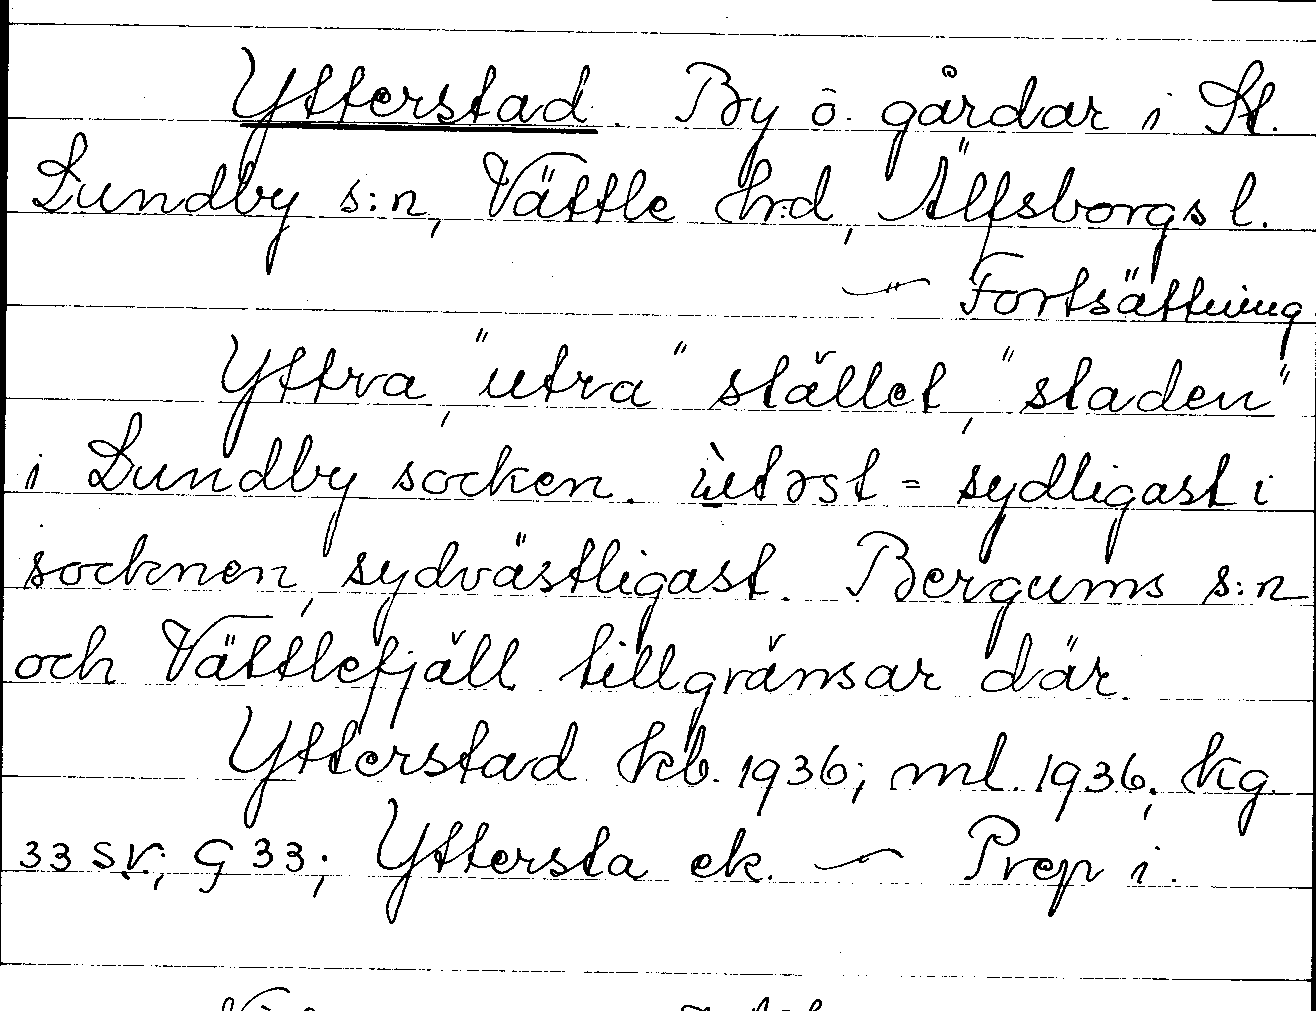 Ytterstad. By o. gårdar i St.
Lundby s:n, Vättle hrd, Älfsborgs l.
— Fortsättning
Yttra, "utra" stället, "staden"
i Lundby socken. ùtəst = sydligast i
socknen, sydvästligast. Bergums s:n
och Vättlefjäll tillgränsar där.
Ytterstad kb. 1936; ml. 1936; kg.
33 sv; G 33; Yttersta ek. — Prep i.